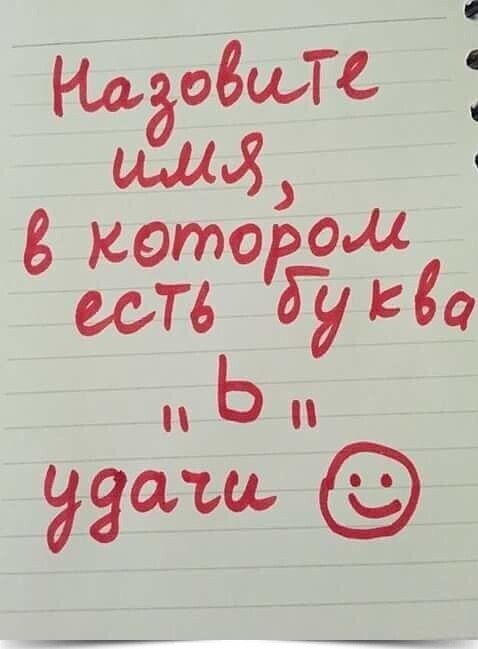 Назовите
имя,
в котором
есть буква
„Ь"
удачи